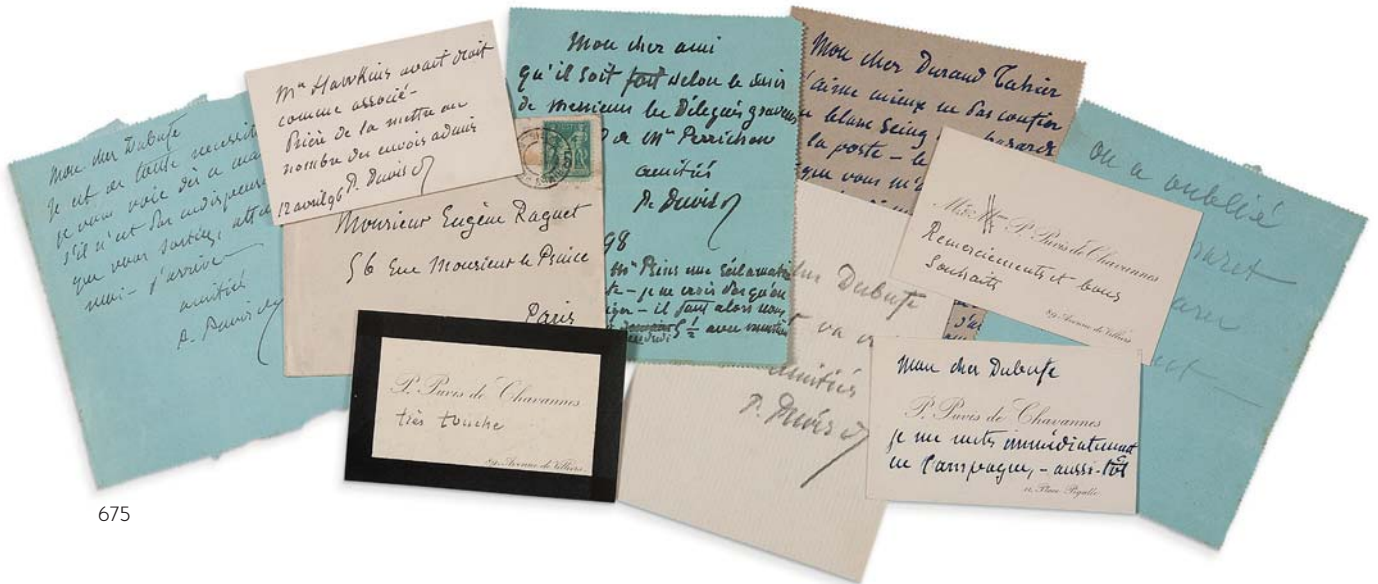 Mon cher Dubufe
je vous voie dès a
que vous sortiez,
moi - j'arrive -
amitiés
P. Puvis
Mme Hawkins avait droit
comme associé -
Prière de la mettre au
nombre des envois admis
12 avril 96 P. Puvis
Monsieur Eugène Raguet
56 rue Monsieur le Prince
Paris
P. Puvis de Chavannes
très touché
89, Avenue de Villiers
Mon cher ami
qu'il soit fait selon le désir
de messieurs les Délégués graveurs
Mr Perrichon
amitiés
P. Puvis
98
une réclamation
- je ne crois pas qu'on
- il faut alors
5 1/2 avec
Mon cher Durand Tahier
j'aime mieux ne pas confier
blanc seing hasard
la poste - le
que vous m'a
Dubufe
va
amitiés
P. Puvis
P. Puvis de Chavannes
Remerciements et bons
souhaits
89 Avenue de Villiers
Mon cher Dubufe
P. Puvis de Chavannes
je me mets immédiatement
en campagne, - aussi-tôt
11, Place Pigalle
on a oublié
675